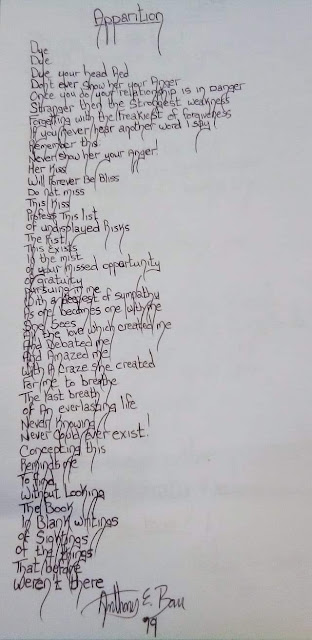 Apparition
Dye
Dye
Dye your head Red
Dont ever show her your Anger
Once you do your relationship is in Danger
Stranger then the Strongest weakness
Forgetting with the freakiest of forgiveness
If you never hear another word I say
Remember this
Never show her your Anger!
Her Kiss
Will Forever Be Bliss
Do not miss
This Kiss
Profess This list
Of undisplayed Risks
The Fist
This Exists
In the mist
of your missed opportunity
of gratuity
pursuing in me
With a of sympathy
As one becomes one with me
And Sees
the love which created me
And Debated me
And Amazed me
With A Craze she created
For me to breathe
The last breath
of An everlasting life
Never Knowing
Never Could ever exist!
Concepting this
Reminds me
To find
Without Looking
The Book
In Blank writings
of Sightings
of the things
That before
Weren't there
Anthony E.
99